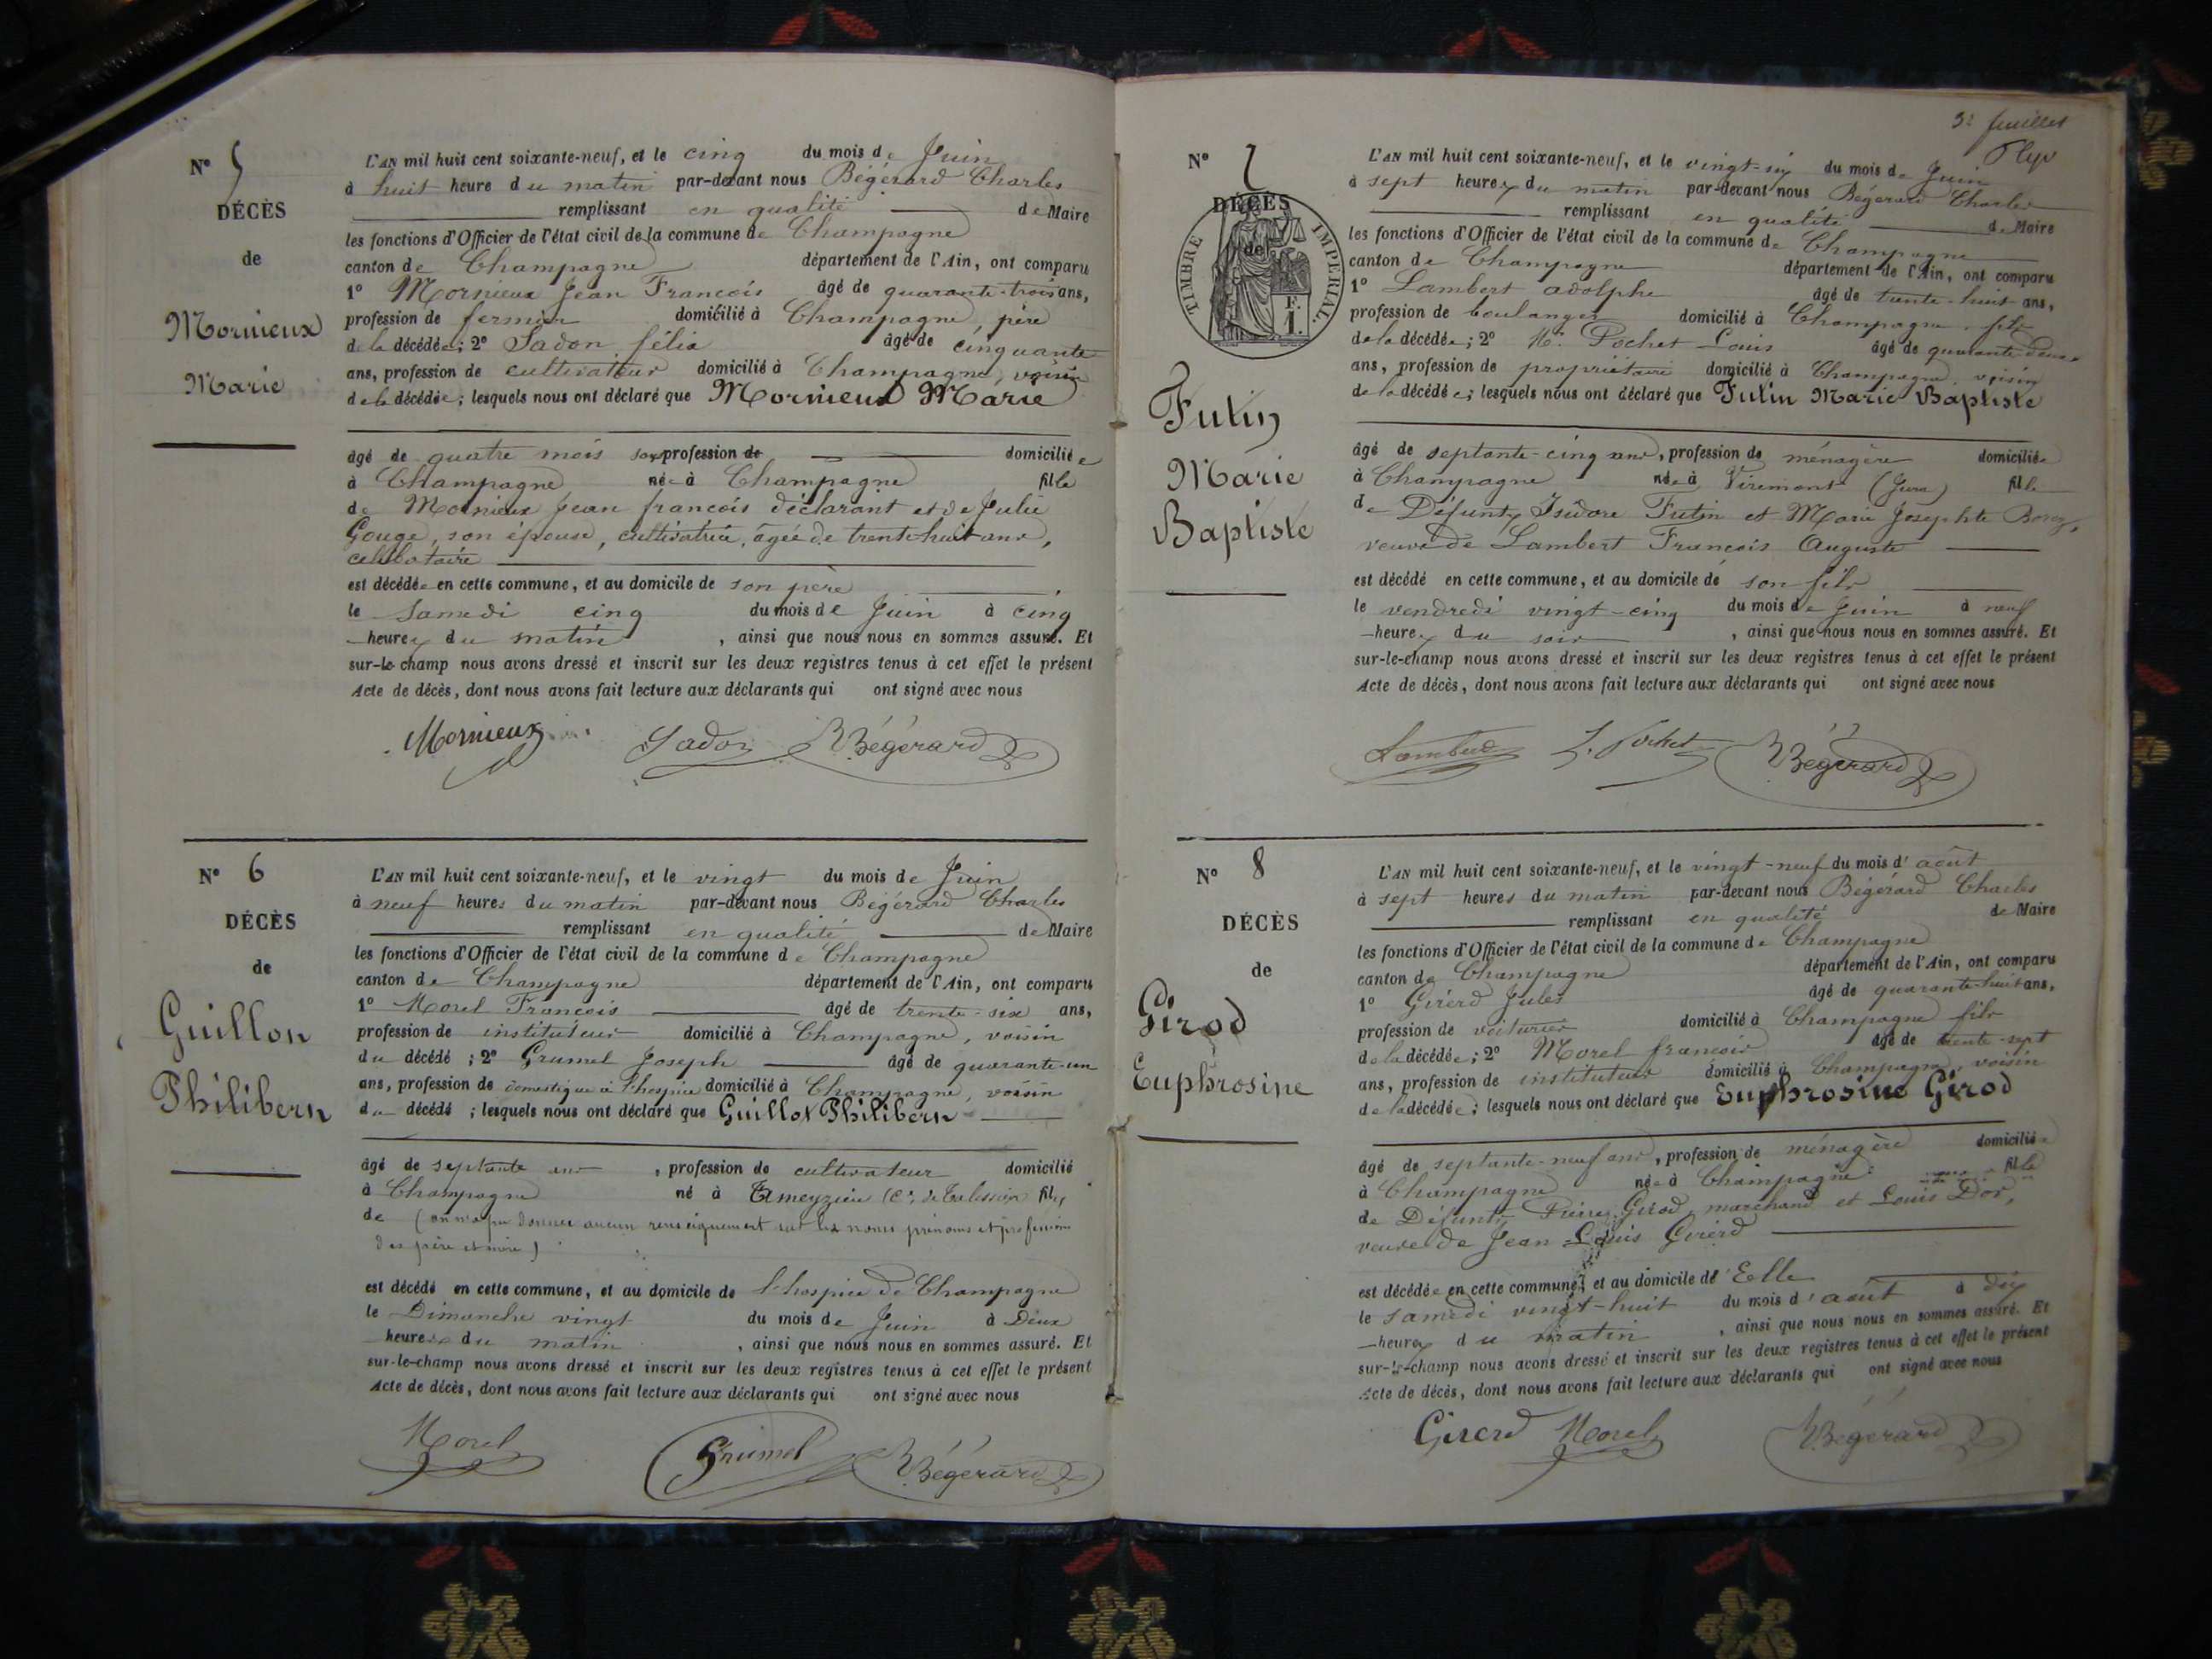 N° 5
DÉCÈS
de
Mornieux
Marie
L'AN mil huit cent soixante-neuf, et le cinq du mois de Juin
à huit heure du matin par-devant nous Bégérard Charles
remplissant en qualité de Maire
les fonctions d'Officier de l'état civil de la commune de Champagne
canton de Champagne département de l'Ain, ont comparu
1° Mornieux Jean François âgé de quarante-trois ans,
profession de fermier domicilié à Champagne, père
de la décédée; 2° Sadon félix âgé de cinquante
ans, profession de cultivateur domicilié à Champagne, voisin
de la décédée; lesquels nous ont déclaré que Mornieux Marie
âgé de quatre mois sans profession de domiciliée
à Champagne née à Champagne fille
de Mornieux Jean françois déclarant et de Julie
Gouge, son épouse, cultivatrice, âgée de trente-huit ans,
célibataire
est décédée en cette commune, et au domicile de son père
le Samedi cinq du mois de Juin à cinq
heures du matin, ainsi que nous nous en sommes assuré. Et
sur-le-champ nous avons dressé et inscrit sur les deux registres tenus à cet effet le présent
Acte de décès, dont nous avons fait lecture aux déclarants qui ont signé avec nous
Mornieux Sadon Bégérard
N° 6
DÉCÈS
de
Guillon
Philibern
L'AN mil huit cent soixante-neuf, et le vingt du mois de Juin
à neuf heures du matin par-devant nous Bégérard Charles
remplissant en qualité de Maire
les fonctions d'Officier de l'état civil de la commune de Champagne
canton de Champagne département de l'Ain, ont comparu
1° Morel François âgé de trente-six ans,
profession de instituteur domicilié à Champagne, voisin
du décédé; 2° Grumel Joseph âgé de quarante-un
ans, profession de domestique à l'hospice domicilié à Champagne, voisin
du décédé; lesquels nous ont déclaré que Guillot Philibern
âgé de septante ans, profession de cultivateur domicilié
à Champagne né à Ameyzieu (Cne de Talissieu fils
de (on n'a pu donner aucun renseignement sur les noms prénoms et profession
des père et mère)
est décédé en cette commune, et au domicile de l'hospice de Champagne
le Dimanche vingt du mois de Juin à Deux
heures du matin, ainsi que nous nous en sommes assuré. Et
sur-le-champ nous avons dressé et inscrit sur les deux registres tenus à cet effet le présent
Acte de décès, dont nous avons fait lecture aux déclarants qui ont signé avec nous
Morel Grumel Bégérard
3e feuillet
N° 7
DÉCÈS
de
TIMBRE IMPÉRIAL
F. 1.
Futin
Marie
Baptiste
L'AN mil huit cent soixante-neuf, et le vingt-six du mois de Juin
à sept heures du matin par-devant nous Bégérard Charles
remplissant en qualité de Maire
les fonctions d'Officier de l'état civil de la commune de Champagne
canton de Champagne département de l'Ain, ont comparu
1° Lambert adolphe âgé de trente-huit ans,
profession de boulanger domicilié à Champagne, fils
de la décédée; 2° Mr. Pochet Louis âgé de quarante-deux
ans, profession de propriétaire domicilié à Champagne, voisin
de la décédée; lesquels nous ont déclaré que Futin Marie Baptiste
âgé de septante-cinq ans, profession de ménagère domiciliée
à Champagne née à Viremont (Jura) fille
de Défunts Isidore Futin et Marie Josephte
veuve de Lambert François Auguste
est décédé en cette commune, et au domicile de son fils
le vendredi vingt-cinq du mois de Juin à neuf
heures du soir, ainsi que nous nous en sommes assuré. Et
sur-le-champ nous avons dressé et inscrit sur les deux registres tenus à cet effet le présent
Acte de décès, dont nous avons fait lecture aux déclarants qui ont signé avec nous
Lambert L. Pochet Bégérard
N° 8
DÉCÈS
de
Girod
Euphrosine
L'AN mil huit cent soixante-neuf, et le vingt-neuf du mois d'août
à sept heures du matin par-devant nous Bégérard Charles
remplissant en qualité de Maire
les fonctions d'Officier de l'état civil de la commune de Champagne
canton de Champagne département de l'Ain, ont comparu
1° Girerd Jules âgé de quarante-huit ans,
profession de voiturier domicilié à Champagne fils
de la décédée; 2° Morel françois âgé de trente-sept
ans, profession de instituteur domicilié à Champagne, voisin
de la décédée; lesquels nous ont déclaré que Euphrosine Girod
âgé de septante-neuf ans, profession de ménagère domiciliée
à Champagne née à Champagne fille
de Défunts Pierre Girod, marchand et Louis Dor,
veuve de Jean-Louis Girerd
est décédée en cette commune, et au domicile de Elle
le samedi vingt-huit du mois d'août à dix
heures du matin, ainsi que nous nous en sommes assuré. Et
sur-le-champ nous avons dressé et inscrit sur les deux registres tenus à cet effet le présent
Acte de décès, dont nous avons fait lecture aux déclarants qui ont signé avec nous
Girerd Morel Bégérard